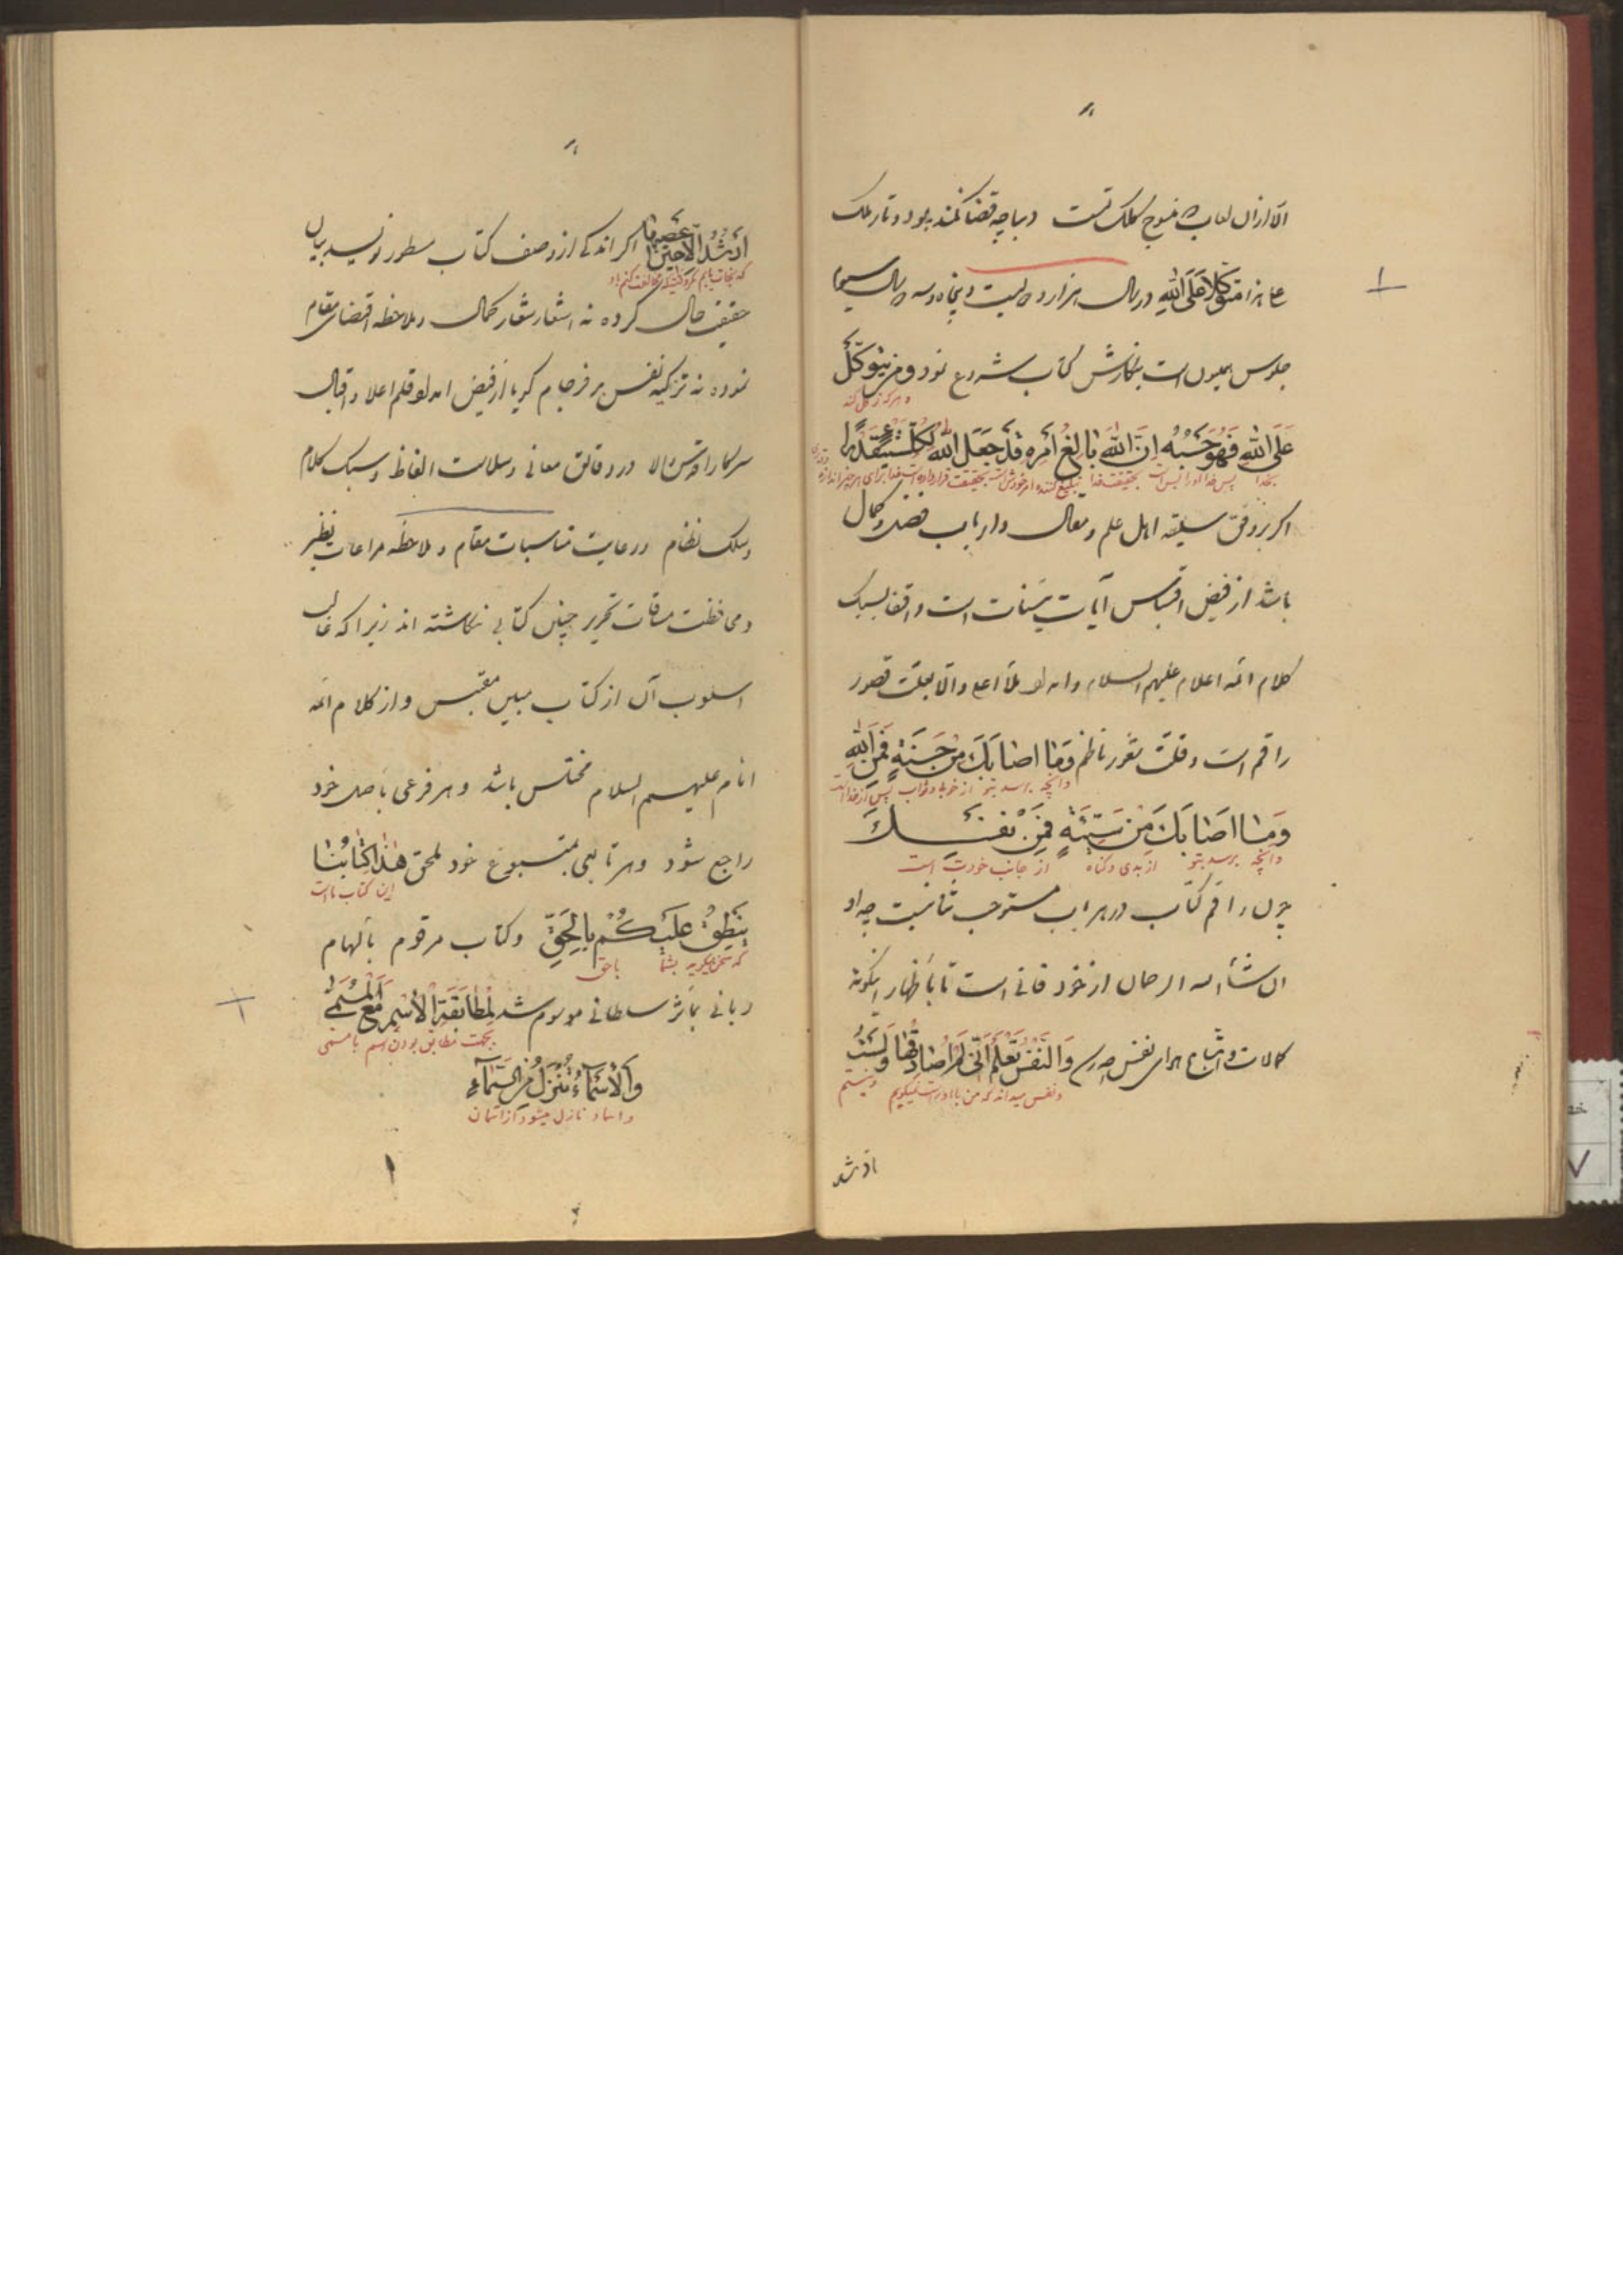 الا ازان لعاب منسوج کلک تست دیباچه قضا کمند بود و تار ملک
عاجزا متوکلا علی الله در سال هزار و دویست و پنجاه و سه سال سیم
جلوس همیون است بنگارش کتاب شروع نمود وَمَن یَتَوَکَّل
و هرکه توکل کند
عَلَی اللهِ فَهُوَ حَسْبُهُ اِنَّ اللهَ بالِغُ اَمْرِهِ قَدْ جَعَلَ اللهُ لِکُلِّ شَیْءٍ قَدْرًا
بخدا پس خدا او را بس است بحقیقت خدا تبلیغ کننده امر خودش است بحقیقت قرار داده است خدا برای هر چیز اندازه
اگر بر وفق سلیقه اهل علم و مقال و ارباب فضل و کمال
باشد از فیض اقتباس آیات بینات است و اقتفا بسبک
کلام ائمه اعلام علیهم السلام و امداد ملأ اعلی والا بعلت قصور
راقم است و قلت شعور ناظم وَمٰا اَصٰابَکَ مِنْ حَسَنَةٍ فَمِنَ اللهِ
و آنچه برسد بتو از خوبی و ثواب پس از خدا است
وَمٰا اَصٰابَکَ مِن سَیِّئَةٍ فَمِنْ نَفْسِکَ
و آنچه برسد بتو از بدی و گناه از جانب خودت است
چون راقم کتاب در هر باب مستوجب ثنا نیست چه او
ان شاء الله الرحمان از خود فانی است تا باظهار اینگونه
کمالات و اتباع هوای نفس چه رسد وَالنَّفْسُ تَعْلَمُ اَنّی لا اُصٰادِقُهٰا وَلَسْتُ
و نفس میداند که من با او راست نمیگویم و نیستم
ارشد
اَرْشُدُ اِلّا حینَ اَعْصیهٰا اگر اندکی از وصف کتاب مسطور نویسد بیان
که نجات یابم مگر وقتیکه مخالفت کنم باو
حقیقت حال کرده نه اشعار شعار کمال و ملاحظه اقتضای مقام
نموده نه تزکیه نفس بد فرجام گویا از فیض امداد قلم اعلا و اقبال
سرکار اقدس والا در دقائق معانی و سلاست الفاظ و سبک کلام
و سلک نظام و رعایت مناسبات مقام و ملاحظه مراعات نظیر
و محافظت مرقات تحریر چنین کتابی نگاشته اند زیرا که غالب
اسلوب آن از کتاب مبین مقتبس و از کلام ائمه
انام علیهم السلام مختلس باشد و هر فرعی باصل خود
راجع شود و هر تابعی بمتبوع خود ملحق هٰذٰا کِتٰابُنٰا
این کتاب ما است
یَنْطِقُ عَلَیْکُمْ بِالْحَقِّ و کتاب مرقوم بالهام
که سخن میگوید بشما باحق
ربانی بمآثر سلطانی موسوم شد لِمُطٰابَقَةِ الْاِسْمِ مَعَ الْمُسَمّٰی
بجهت مطابق بودن اسم با مسمی
وَالْاَسْمآءُ تُنْزَلُ مِنَ السَّمآءِ
و اسماء نازل میشود از آسمان